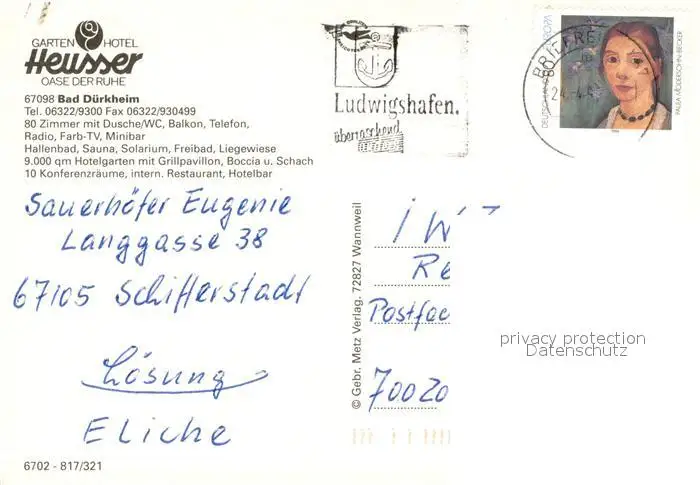 GARTEN HOTEL
Heusser
OASE DER RUHE
67098 Bad Dürkheim
Tel. 06322/9300 Fax 06322/930499
80 Zimmer mit Dusche/WC, Balkon, Telefon,
Radio, Farb-TV, Minibar
Hallenbad, Sauna, Solarium, Freibad, Liegewiese
9.000 qm Hotelgarten mit Grillpavillon, Boccia u. Schach
10 Konferenzräume, intern. Restaurant, Hotelbar
Sauerhöfer Eugenie
Langgasse 38
67105 Schifferstadt
Lösung
ELiche
6702 - 817/321
Ludwigshafen.
überraschend
BRIEFRE
24.-4.
EUROPA
PAULA MODERSOHN-BECKER
© Gebr. Metz Verlag, 72827 Wannweil
Re
Postfac
70020
privacy protection
Datenschutz